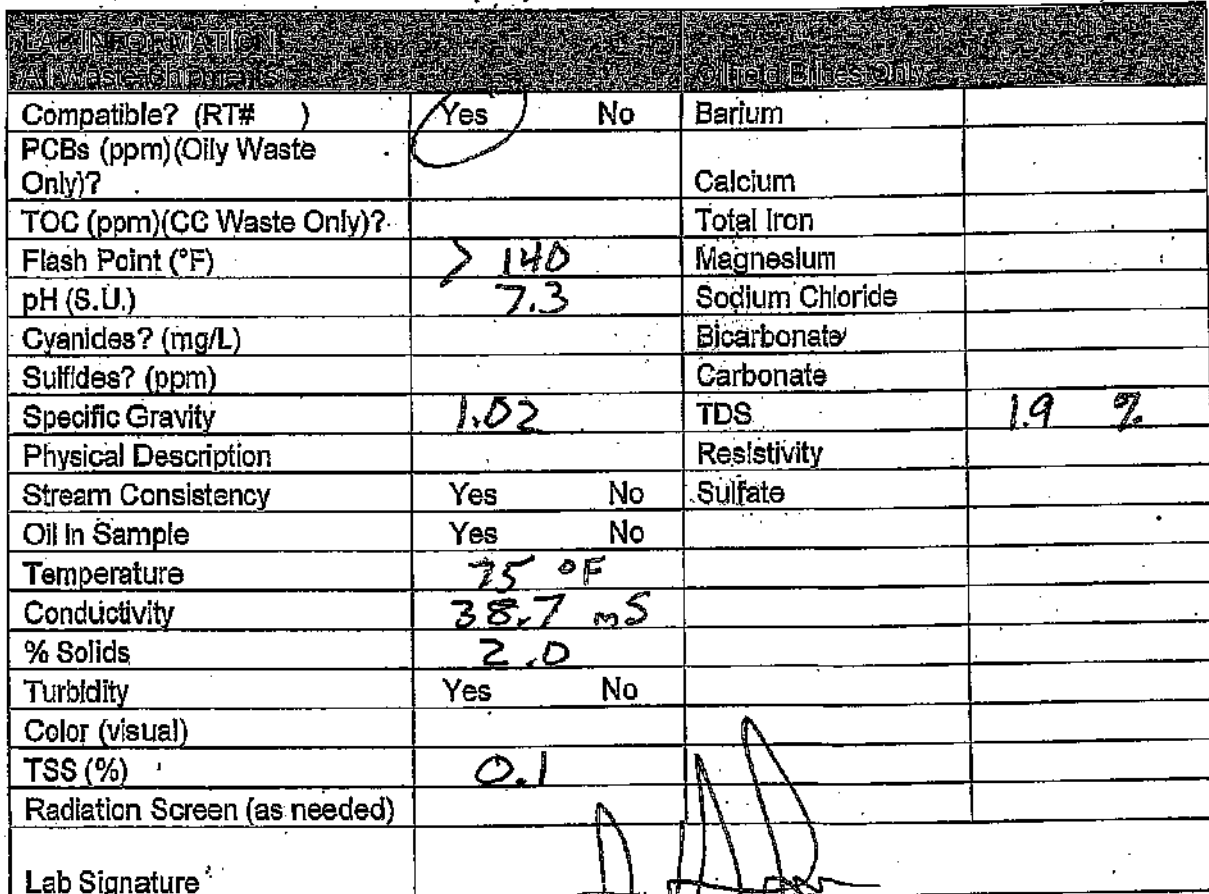 LAB INFORMATION
All Waste Shipments Oilfield Brines Only
Compatible? (RT# ) Yes No Barium
PCBs (ppm)(Oily Waste
Only)? Calcium
TOC (ppm)(CC Waste Only)? Total Iron
Flash Point (°F) > 140 Magnesium
pH (S.U.) 7.3 Sodium Chloride
Cyanides? (mg/L) Bicarbonate
Sulfides? (ppm) Carbonate
Specific Gravity 1.02 TDS 1.9 %
Physical Description Resistivity
Stream Consistency Yes No Sulfate
Oil In Sample Yes No
Temperature 75 °F
Conductivity 38.7 mS
% Solids 2.0
Turbidity Yes No
Color (visual)
TSS (%) 0.1
Radiation Screen (as needed)
Lab Signature